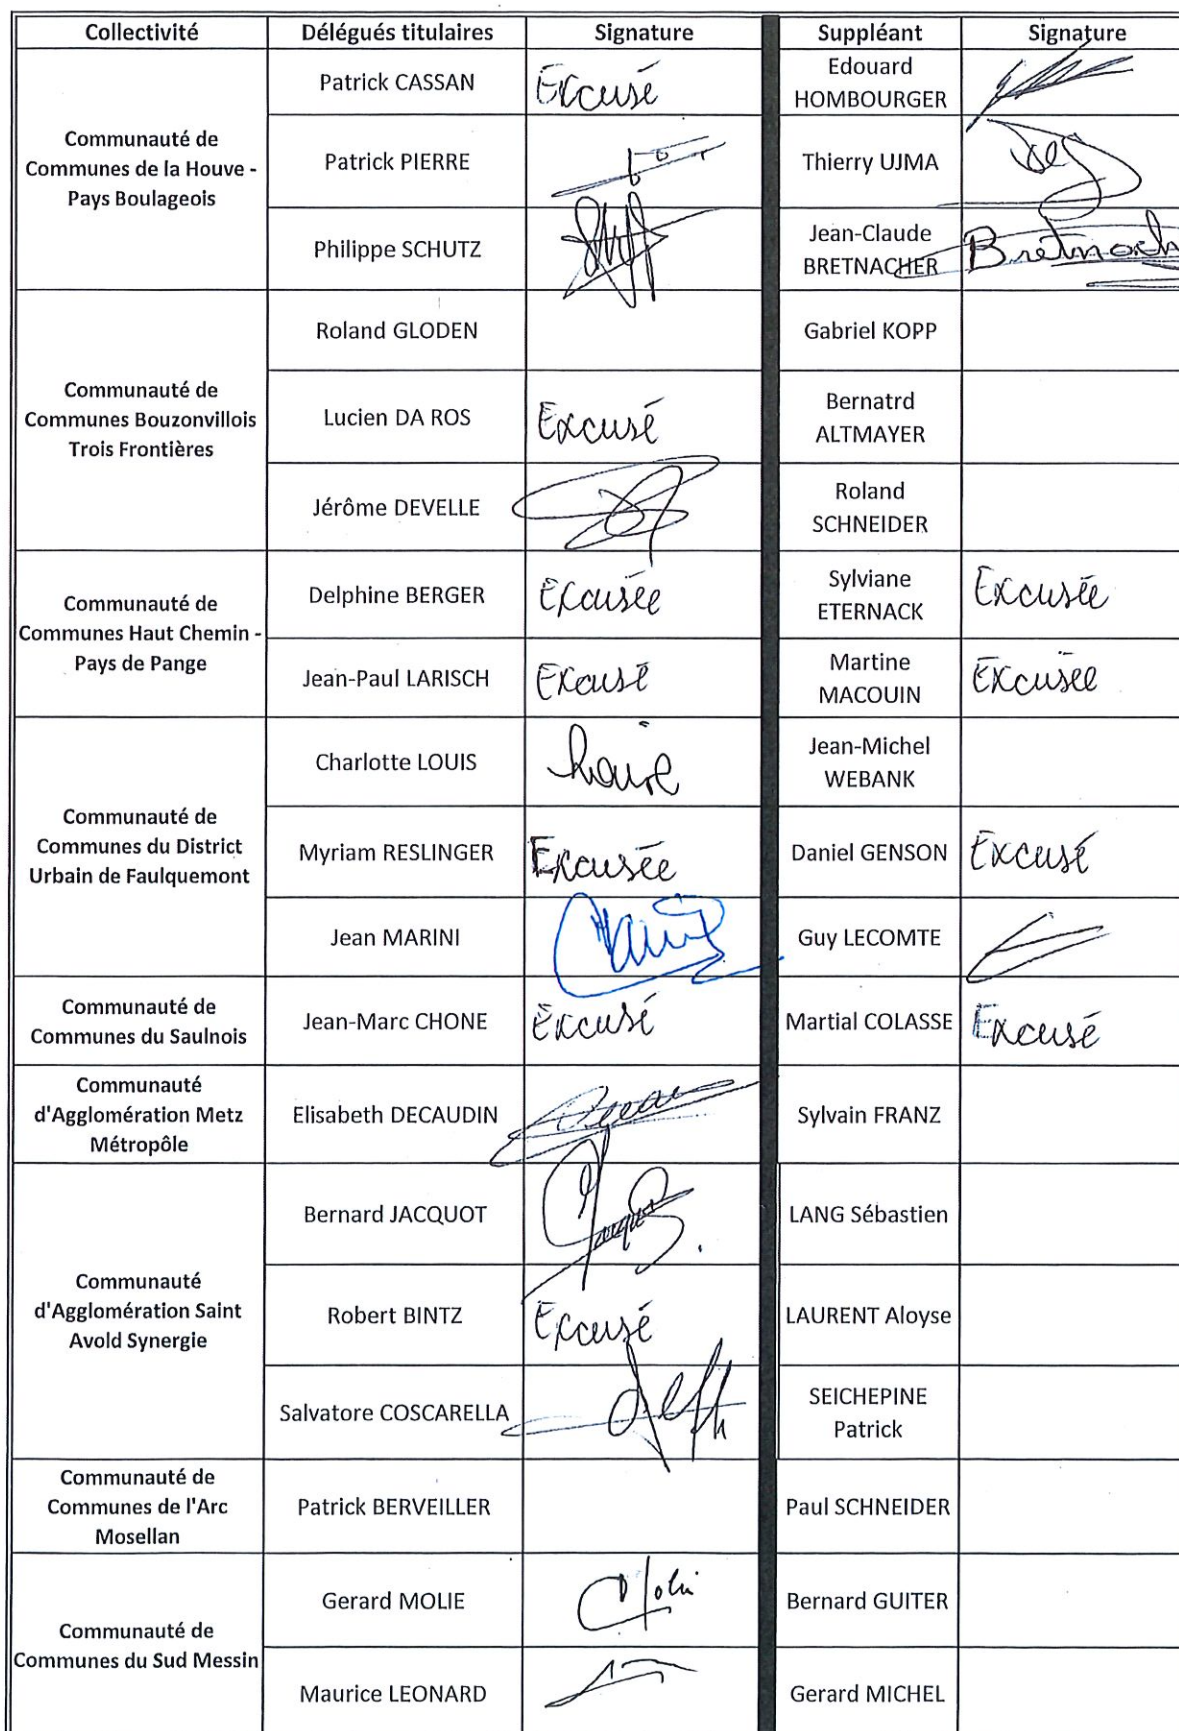 Collectivité Délégués titulaires Signature Suppléant Signature
Communauté de
Communes de la Houve -
Pays Boulageois
Patrick CASSAN Excusé Edouard
HOMBOURGER
Patrick PIERRE Thierry UJMA
Philippe SCHUTZ Jean-Claude
BRETNACHER
Communauté de
Communes Bouzonvillois
Trois Frontières
Roland GLODEN Gabriel KOPP
Lucien DA ROS Excusé Bernatrd
ALTMAYER
Jérôme DEVELLE Roland
SCHNEIDER
Communauté de
Communes Haut Chemin -
Pays de Pange
Delphine BERGER Excusée Sylviane
ETERNACK Excusée
Jean-Paul LARISCH Excusé Martine
MACOUIN Excusée
Communauté de
Communes du District
Urbain de Faulquemont
Charlotte LOUIS Jean-Michel
WEBANK
Myriam RESLINGER Excusée Daniel GENSON Excusé
Jean MARINI Guy LECOMTE
Communauté de
Communes du Saulnois
Jean-Marc CHONE Excusé Martial COLASSE Excusé
Communauté
d'Agglomération Metz
Métropôle
Elisabeth DECAUDIN Sylvain FRANZ
Communauté
d'Agglomération Saint
Avold Synergie
Bernard JACQUOT LANG Sébastien
Robert BINTZ Excusé LAURENT Aloyse
Salvatore COSCARELLA SEICHEPINE
Patrick
Communauté de
Communes de l'Arc
Mosellan
Patrick BERVEILLER Paul SCHNEIDER
Communauté de
Communes du Sud Messin
Gerard MOLIE Bernard GUITER
Maurice LEONARD Gerard MICHEL